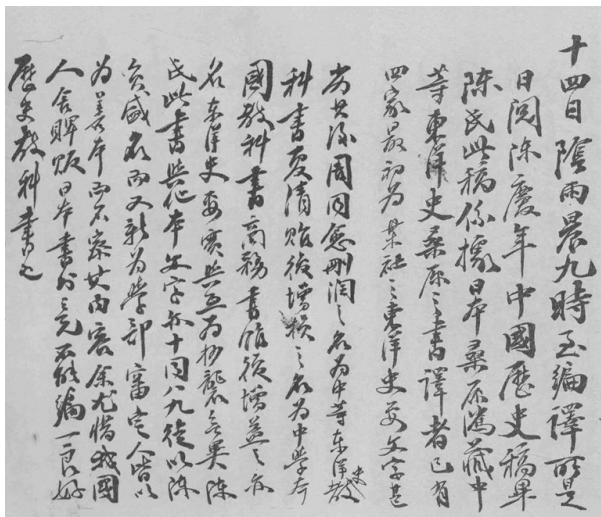 十四日陰雨晨九時至編譯所是
日閱陳慶年中國歷史稿畢
陳氏此稿係據日本桑原隲藏中
等東洋史桑原之書譯者已有
四家最初為某社之東洋史要文字甚
劣其後周同愈刪潤之名為中等東洋史教
科書夏清貽復增損之名為中學本
國教科書商務書館復增益之亦
名東洋史要實與互為抄襲無異陳
氏此書與他本文字亦十同八九徒以陳
負盛名而又新為學部審定人皆以
為善本而不察其內容余尤惜我國
人舍販日本書外竟不能編一良好
歷史教科書也